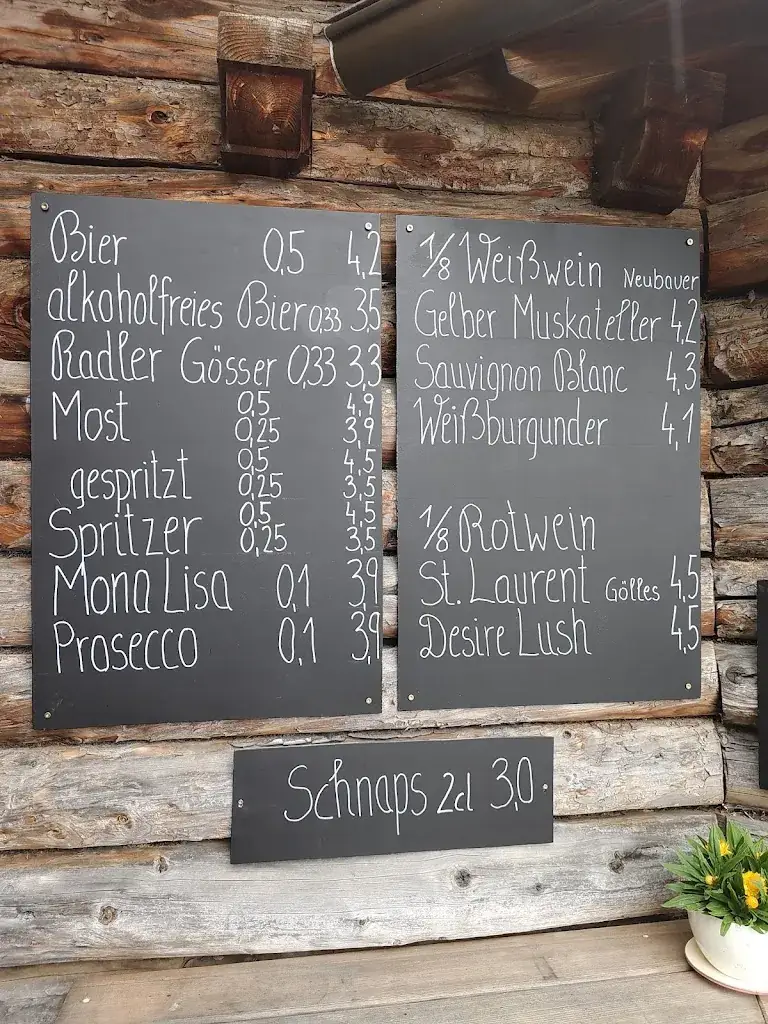 Bier 0,5 4,2
alkoholfreies Bier 0,33 3,5
Radler Gösser 0,33 3,3
Most 0,5 4,9
0,25 3,9
gespritzt 0,5 4,5
0,25 3,5
Spritzer 0,5 4,5
0,25 3,5
Mona Lisa 0,1 3,9
Prosecco 0,1 3,9
1/8 Weißwein Neubauer
Gelber Muskateller 4,2
Sauvignon Blanc 4,3
Weißburgunder 4,1
1/8 Rotwein
St. Laurent Gölles 4,5
Desire Lush 4,5
Schnaps 2cl 3,0